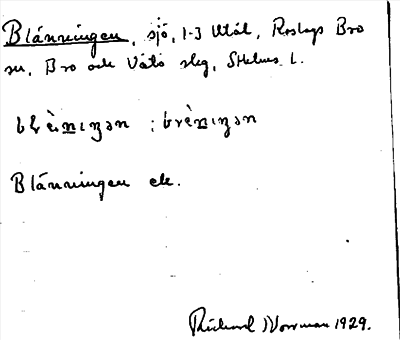 Blänningen, sjö, 1-3 Utål, Roslags Bro
sn, Bro och Vätö slg, Sthlms l.
brèniŋən
Blänningen ek.
Rickard Norrman 1929.